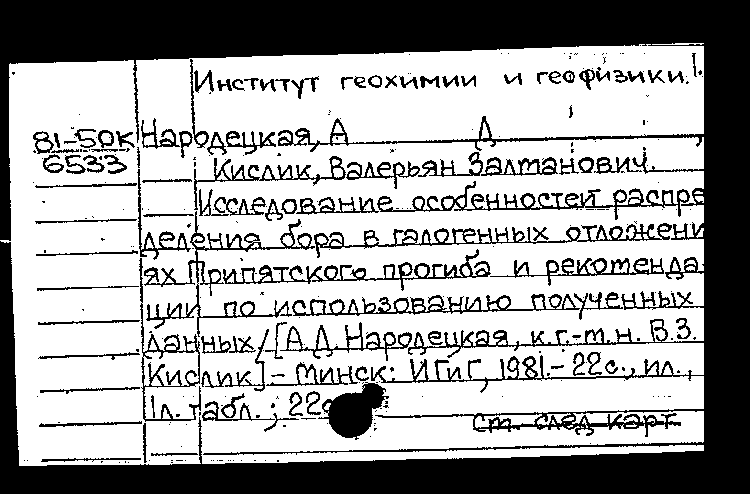 Институт геохимии и геофизики.
81-50К Народецкая, А Д
6533 Кислик, Валерьян Залтанович.
Исследование особенностей распре
деления бора в галогенных отложени
ях Припятского прогиба и рекоменда
ции по использованию полученных
данных/[А.Д. Народецкая, к.г.-м.н. В.З.
Кислик]- Минск: ИГиГ, 1981.- 22с., ил.,
1л. табл.; 22с
См. след карт